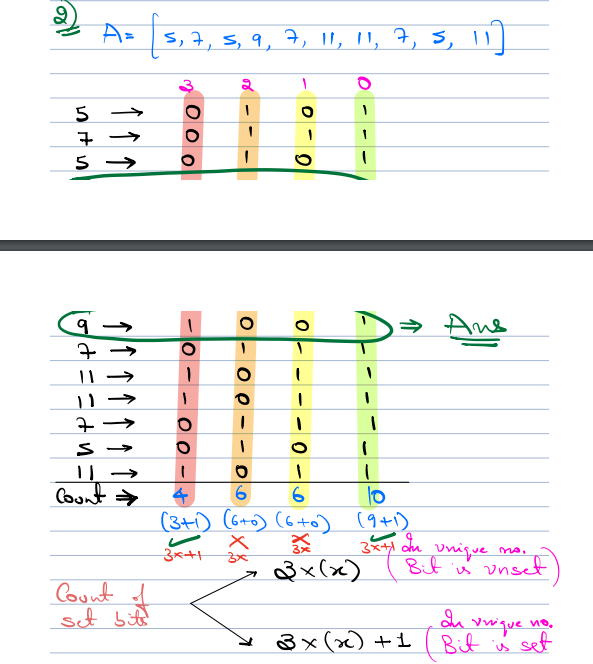 2)
A = [5, 7, 5, 9, 7, 11, 11, 7, 5, 11]
3 2 1 0
5 → 0 1 0 1
7 → 0 1 1 1
5 → 0 1 0 1
9 → 1 0 0 1 ⇒ Ans
7 → 0 1 1 1
11 → 1 0 1 1
11 → 1 0 1 1
7 → 0 1 1 1
5 → 0 1 0 1
11 → 1 0 1 1
Count ⇒ 4 6 6 10
(3+1) (6+0) (6+0) (9+1)
✓ × × ✓
3x+1 3x 3x 3x+1
3×(x) (In unique no. Bit is unset)
Count of
set bits
3×(x)+1 (In unique no. Bit is set